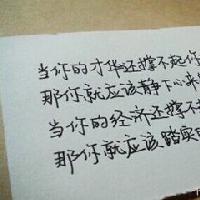 当你的才华还撑不起你
那你就应该静下心来
当你的经济还撑不
那你就应该踏实